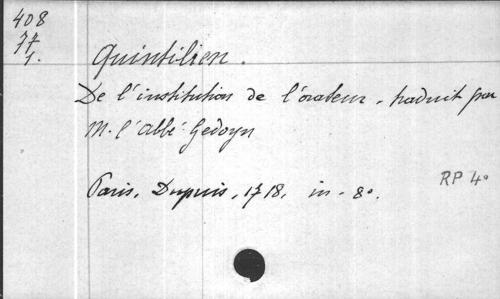 408
77
1.
Quintilien.
De l'institution de l'orateur, traduit par
M. l'abbé Gedoyn
Paris, Dupuis, 1718, in-8º.
RP 4º